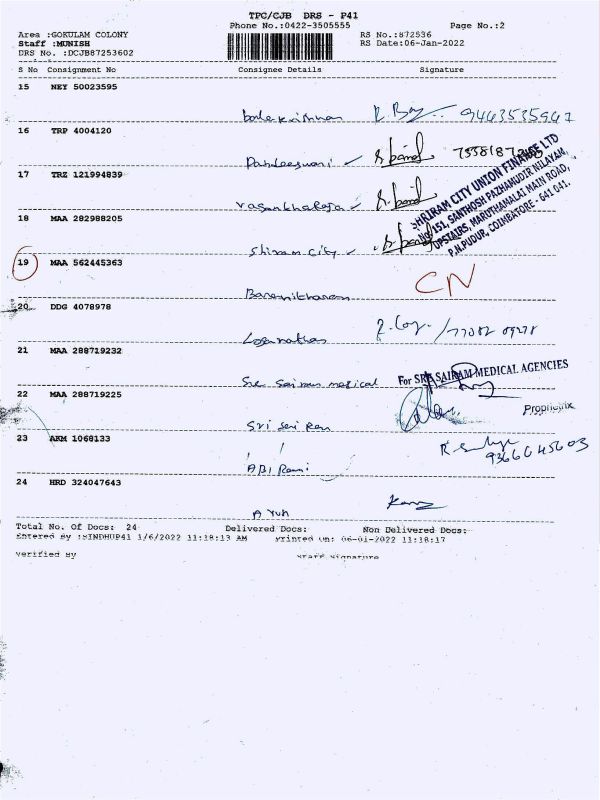 TPC/CJB DRS - P41
Phone No.:0422-3505555 Page No.:2
Area :GOKULAM COLONY RS No.:872536
Staff :MUNISH RS Date:06-Jan-2022
DRS No. :DCJB87253602
S No Consignment No Consignee Details Signature
15 NEY 50023595
balakrishnan
16 TRP 4004120
17 TRZ 121994839
18 MAA 282988205
SHRIRAM CITY UNION FINANCE LTD
NO 151, SANTHOSH PAZHAMUDIR NILAYAM,
UPSTAIRS, MARUTHAMALAI MAIN ROAD,
P.N.PUDUR, COIMBATORE - 641 041.
Shiram City
19 MAA 562445363
CN
20 DDG 4078978
Loganathan
21 MAA 288719232
Sree Sairam medical For SREE SAIRAM MEDICAL AGENCIES
22 MAA 288719225
Sri Sai Ram
23 ARM 1068133
24 HRD 324047643
Total No. Of Docs: 24 Delivered Docs: Non Delivered Docs:
Entered By :SINDHUP41 1/6/2022 11:18:13 AM Printed On: 06-01-2022 11:18:17
Verified By Staff Signature